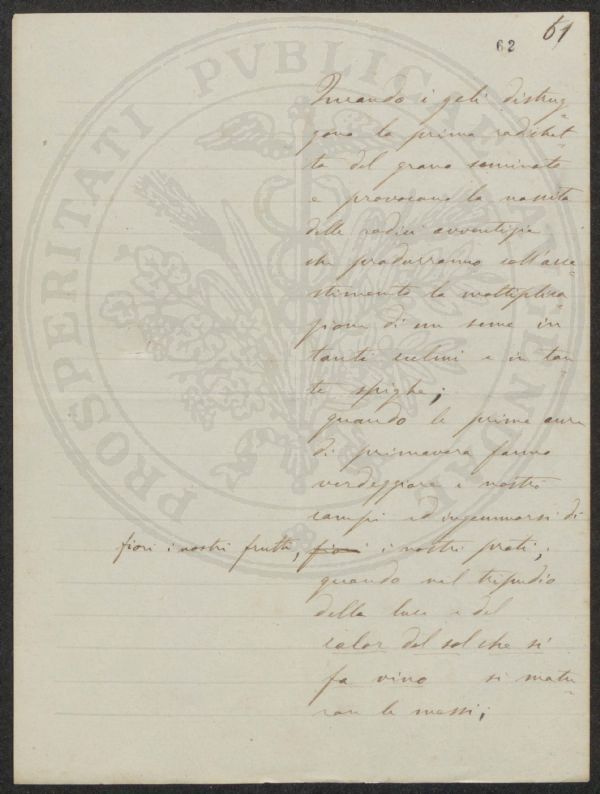 62 61
Quando i geli distrug
gono la prima radichet
ta del grano seminato
e provocano la nascita
delle radici avventizie
che produrranno coll'acce
stimento la moltiplica
zione di un seme in
tanti culmi e in tan
te spighe;
quando le prime aure
di primavera fanno
verdeggiare i nostri
campi ed ingemmarsi di
fiori i nostri frutti, fiori i nostri prati;
quando nel tripudio
della luce e del
calor del sol che si
fa vino si matu
ran le messi;
PROSPERITATI PVBLICAE AVGENDAE